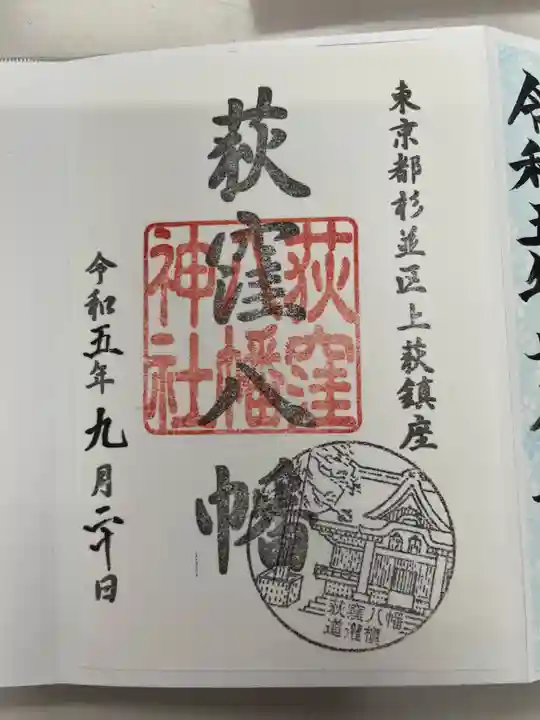 東京都杉並区上荻鎮座
荻窪八幡
荻窪
八幡
神社
令和五年九月二十日
荻窪八幡
道灌槇
令和五年